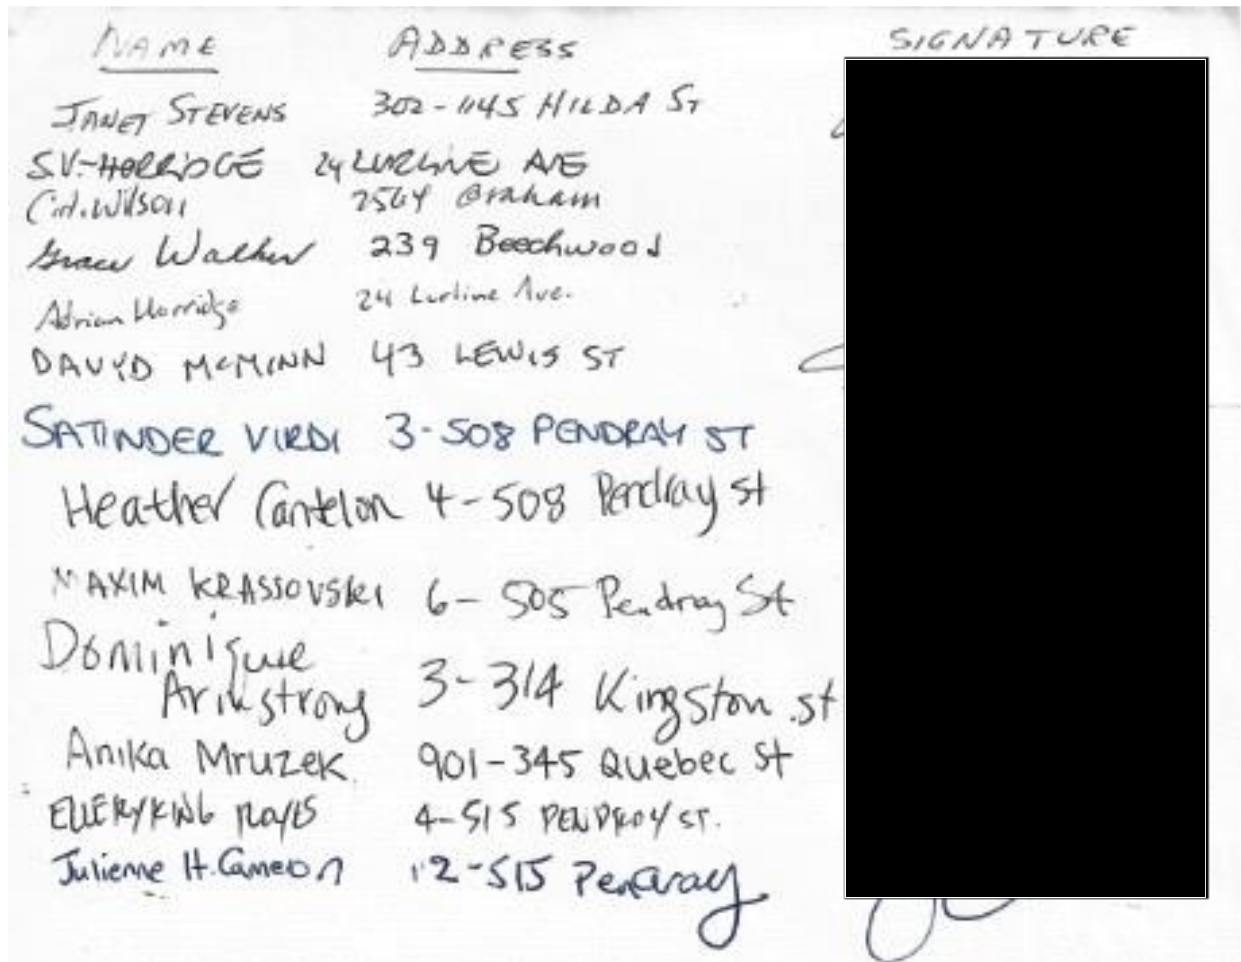 NAME ADDRESS SIGNATURE
JANET STEVENS 302-1145 HILDA ST
S.V. HORRIDGE 24 LURLINE AVE
Wilson 2564 Graham
Grace Walker 239 Beechwood
Adrian Horridge 24 Lurline Ave.
DAVYD McMINN 43 LEWIS ST
SATINDER VIRDI 3-508 PENDRAY ST
Heather Cantelon 4-508 Pendray st
MAXIM KRASSOVSKI 6-505 Pendray St
Dominique
Armstrong 3-314 Kingston st
Anika Mruzek 901-345 Quebec St
ELLERY KING 4-515 PENDRAY ST.
Julienne H. Cameron 2-515 Pendray